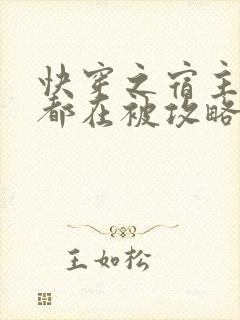 快穿之宿主
都在被攻略
王如松